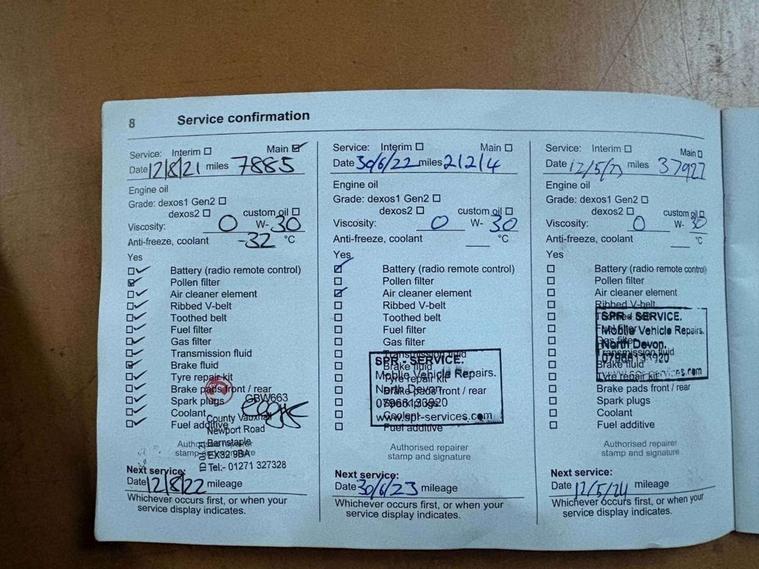 8 Service confirmation
Service: Interim ☐ Main ☑
Date 12/8/21 miles 7885
Engine oil
Grade: dexos1 Gen2 ☐
dexos2 ☐ custom oil ☐
Viscosity: 0 W- 30
Anti-freeze, coolant -32 °C
Yes
Battery (radio remote control)
Pollen filter
Air cleaner element
Ribbed V-belt
Toothed belt
Fuel filter
Gas filter
Transmission fluid
Brake fluid
Tyre repair kit
Brake pads front / rear
Spark plugs GBW663
Coolant
Fuel additive
County Vauxhall
Newport Road
Barnstaple
EX32 9BA
Tel:- 01271 327328
Authorised repairer
stamp and signature
Next service:
Date 12/8/22 mileage
Whichever occurs first, or when your
service display indicates.
Service: Interim ☐ Main ☐
Date 30/6/22 miles 21214
Engine oil
Grade: dexos1 Gen2 ☐
dexos2 ☐ custom oil ☐
Viscosity: 0 W- 30
Anti-freeze, coolant °C
Yes
Battery (radio remote control)
Pollen filter
Air cleaner element
Ribbed V-belt
Toothed belt
Fuel filter
Gas filter
Transmission fluid
Brake fluid
Tyre repair kit
Brake pads front / rear
Spark plugs
Coolant
Fuel additive
SPR - SERVICE.
Mobile Vehicle Repairs.
North Devon.
www.spr-services.com
Authorised repairer
stamp and signature
Next service:
Date 30/6/23 mileage
Whichever occurs first, or when your
service display indicates.
Service: Interim ☐ Main ☐
Date 12/5/23 miles 37927
Engine oil
Grade: dexos1 Gen2 ☐
dexos2 ☐ custom oil ☐
Viscosity: 0 W- 30
Anti-freeze, coolant °C
Yes
Battery (radio remote control)
Pollen filter
Air cleaner element
Ribbed V-belt
Toothed belt
Fuel filter
Gas filter
Transmission fluid
Brake fluid
Tyre repair kit
Brake pads front / rear
Spark plugs
Coolant
Fuel additive
SPR - SERVICE.
Mobile Vehicle Repairs.
North Devon.
Authorised repairer
stamp and signature
Next service:
Date 12/5/24 mileage
Whichever occurs first, or when your
service display indicates.